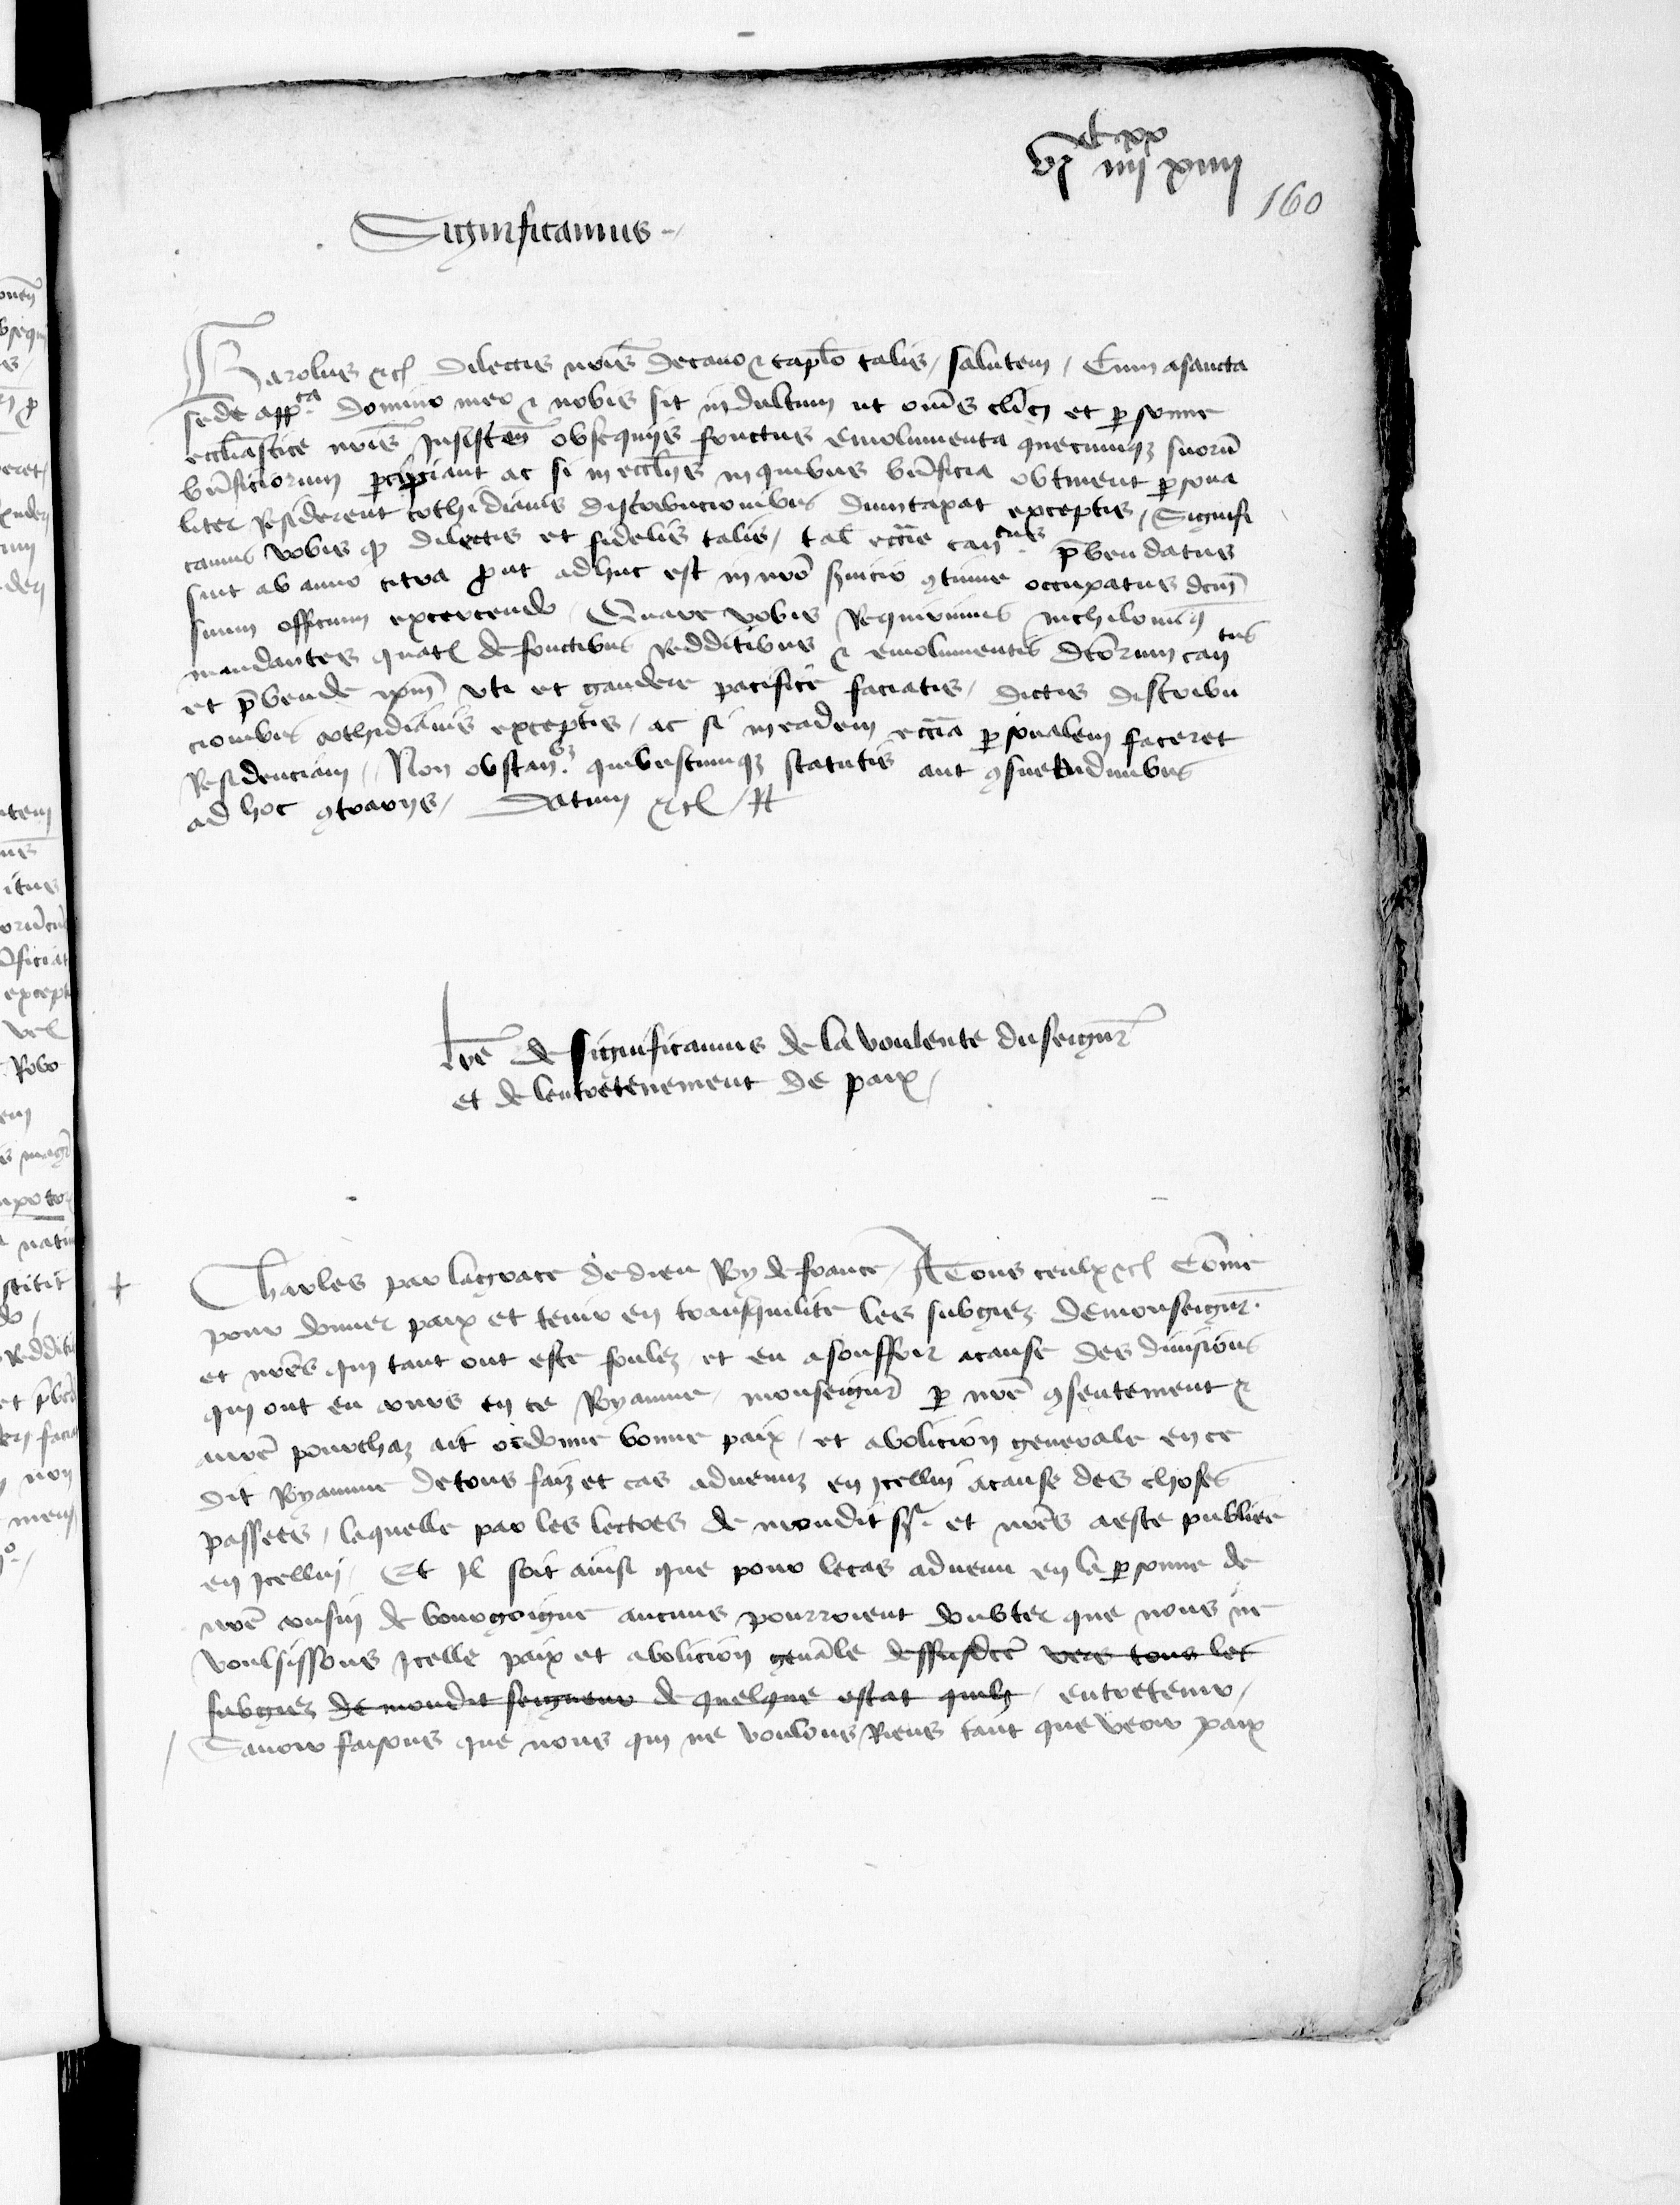 160
Significamus
Karolus etc dilectis nr̄is decano & capl̄o talis, salutem, Cum a sancta
sede app^ca domino meo & nobis sit indultum ut om̄s cl̄ici et persone
eccl̄iastice nr̄is Insisten̄ obsequijs fructus emolumenta quecumqz suorū
bn̄ficiorum percipiant ac si in eccl̄ijs in quibus bn̄ficia obtinent persona
liter Residerent cothidianis distribucionibus dumtaxat exceptis, Signifi
camus vobis quod dilectus et fidelis talis, tal̄ ecc̄ie can^cus p̄bendatus
sunt ab anno citra prout adhuc est in nr̄o s̄uicio continue occupatus dcm̄
suum officium excercendo, Quare vobis Requirimus nichilomin
mandantes quat de fructibus Redditibus & emolumentis dc̄orum can^tus
et p̄bende ip̄m uti et gaudere pacifice faciatis, dictis distribu
cionibus cothidianis exceptis, ac si in eadem ecc̄ia personalem faceret
Residenciam, Non obstan^bz quibuscumqz statutis aut consuetudinibus
ad hoc contrarijs, Datum etc
Lr̄e de significamus de la voulente du seignr̄
et de lentretenement de paix,
Charles par la grace de dieu Roy de france, A Tous ceulx etc Com̄e
pour donner paix et tenir en transquilite les subgiez de monseignr̄
et nr̄es qui tant ont este foulez et eu a souffrir a cause des diuisions
qui ont eu cours en ce Royaume, monseignr̄ par nr̄e consentement &
nr̄e pourchaz ait ordonne bonne paix, et abolicion generale en ce
dit Royaume de tous faiz et cas aduenuz en Icellui a cause des choses
passees, laquelle par les lectres de mondit sr̄ et nr̄es a este publiee
en Icellui, Et Il soit ainsi que pour le cas aduenu en la personne de
nr̄e cousin de bourgoigne aucuns pourroient doubter que nous ne
voulsissons Icelle paix et abolicion gen̄ale vers tous les
subgiez de mondit seigneur de quelque estat quilz, entretenir,
Sauoir faisons que nous qui ne voulons Riens tant que veoir paix